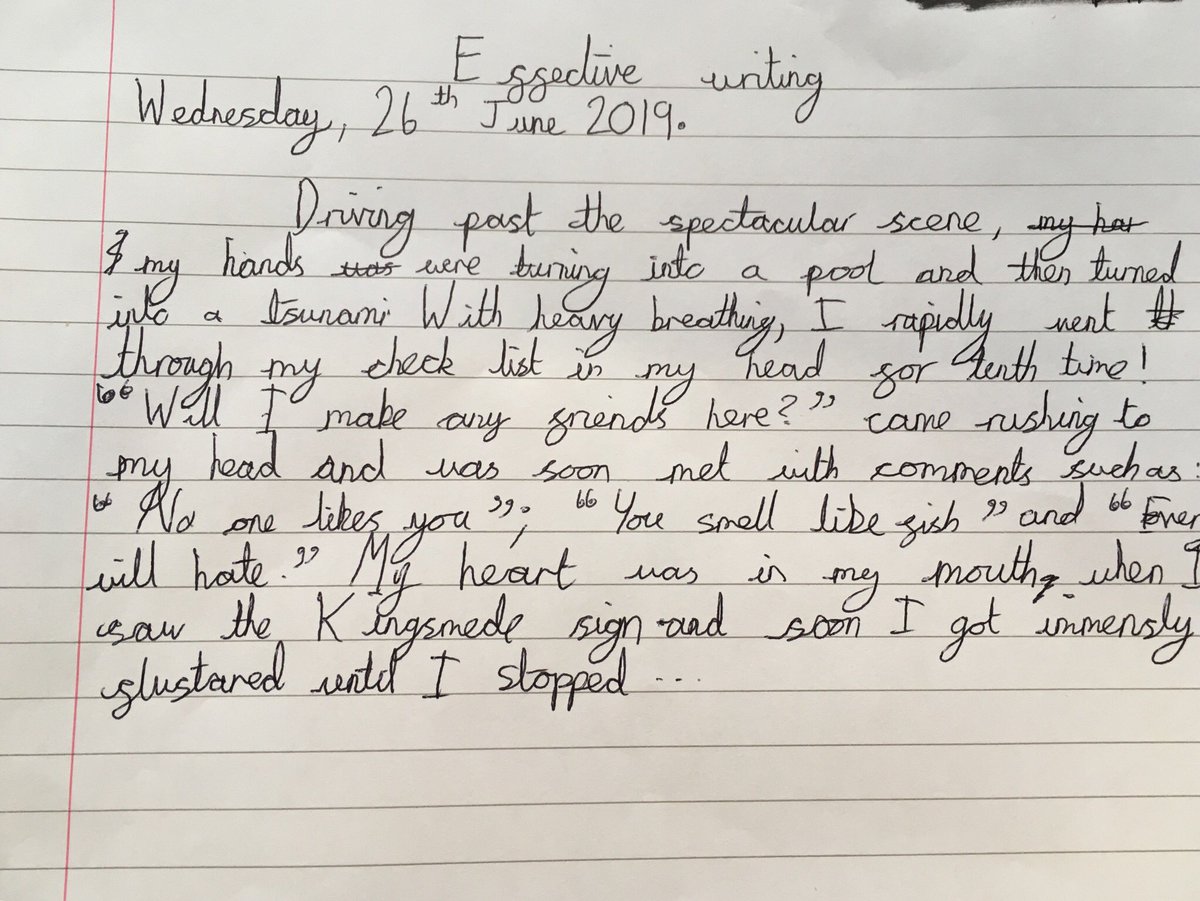 Effective writing
Wednesday, 26th June 2019.
Driving past the spectacular scene, my har
my hands was were turning into a pool and then turned
into a tsunami With heavy breathing, I rapidly went
through my check list in my head for tenth time!
"Will I make any friends here?" came rushing to
my head and was soon met with comments such as:
"No one likes you"; "You smell like fish" and "Ever
will hate." My heart was in my mouth, when I
saw the Kingsmede sign and soon I got immensly
flustared until I stopped...